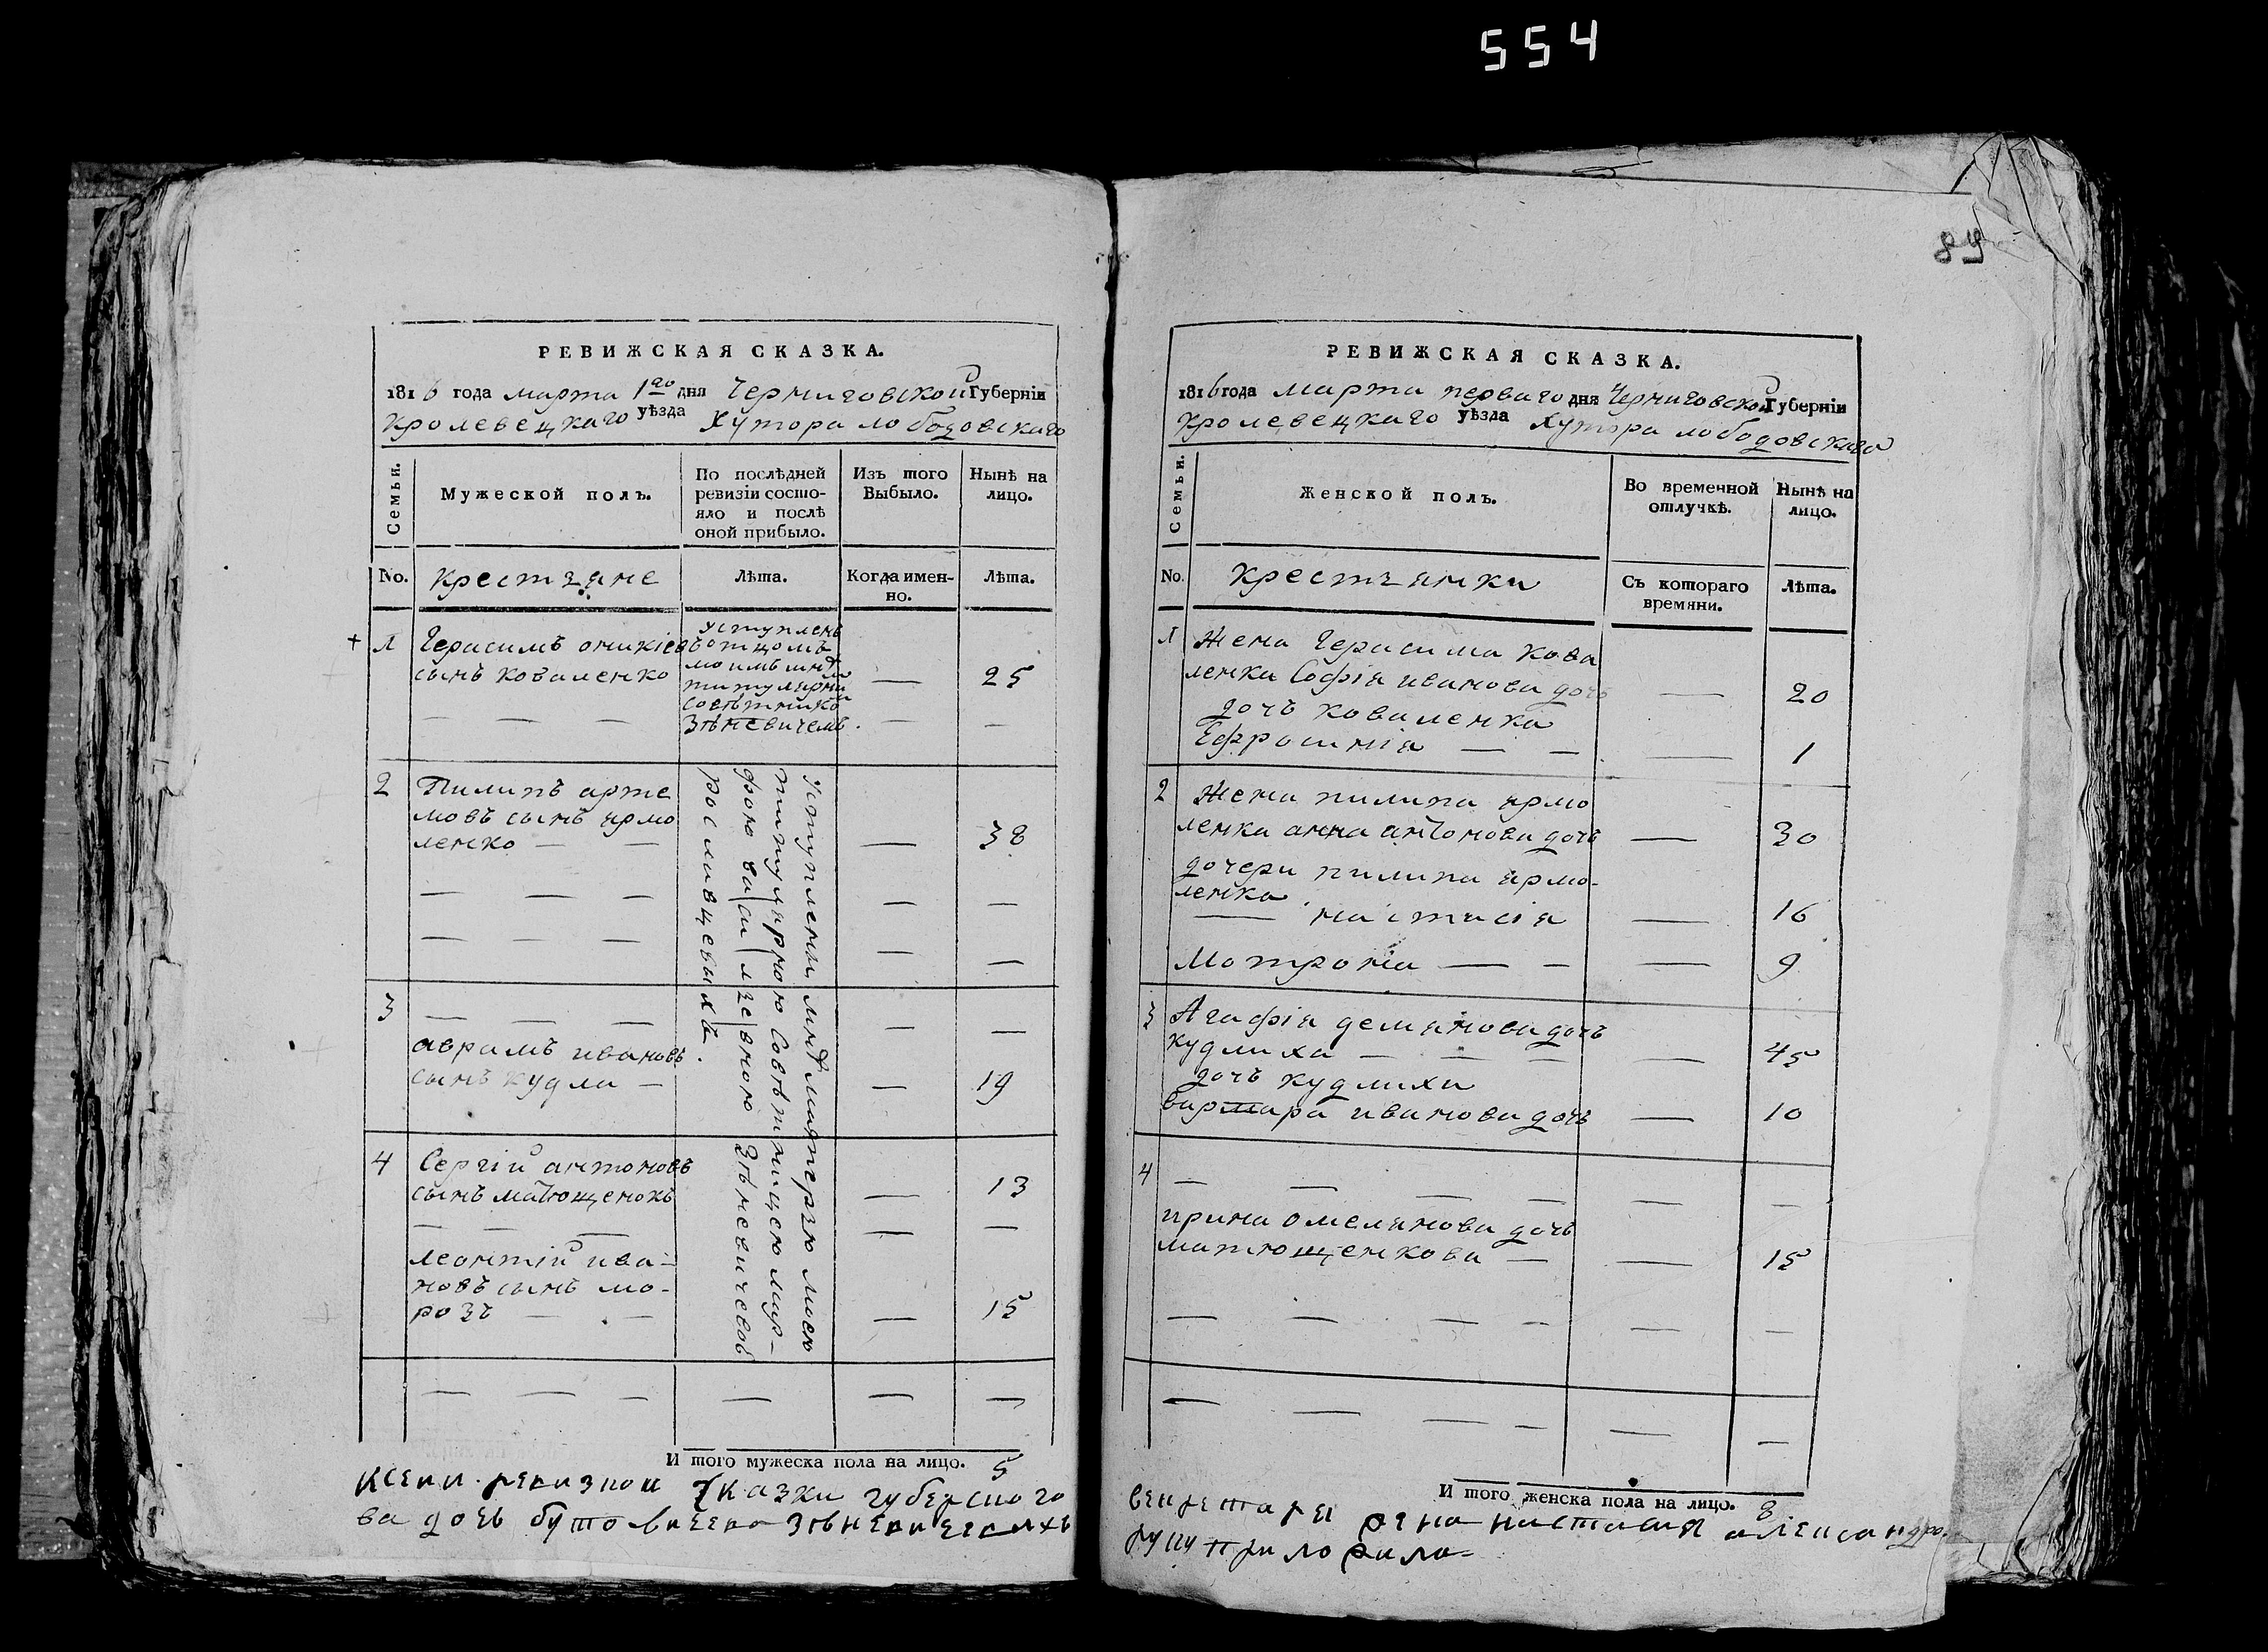 554
89
РЕВИЖСКАЯ СКАЗКА.
1816 года марта 1го дня Черниговской Губерніи
Кролевецкаго уѣзда Хутора лободовскаго
Семьи.
Мужеской полъ.
По послѣдней ревизіи состо-
яло и послѣ
оной прибыло.
Изъ того
Выбыло.
Нынѣ на
лицо.
No.
Крестьяне
Лѣта.
Когда имен-
но.
Лѣта.
1 Герасимъ оникіевъ
сынъ коваленко
уступленъ
отцомъ
моимъ
титулярны
совѣтнико
Зѣневичемъ.
— 25
— — — — —
2 Пилипъ арте
мовъ сынъ ярмо
ленко — — — 38
— — — — —
— — — — —
3 — — — — —
аврамъ ивановъ
сынъ кудла — — 19
4 Сергій антоновъ
сынъ матющенокъ — 13
— — — — —
леонтій ива-
новъ сынъ мо-
розъ — — — 15
уступлени мнѣ матерью моею
титулярною Совѣтницею мар-
фою васильевною Зѣневичевою
— — — — — —
И того мужеска пола на лицо. 5
ксеи ревизкои сказки губерского
ва дочь бутовичева зѣневичевыхъ
РЕВИЖСКАЯ СКАЗКА.
1816 года марта перваго дня Черниговской Губерніи
Кролевецкаго уѣзда Хутора лободовскаго
Семьи.
Женской полъ.
Во временной
отлучкѣ.
Нынѣ на
лицо.
No.
Крестьянки
Съ котораго
времяни.
Лѣта.
1 Жена Герасима Кова
ленка Софія иванова дочь — 20
дочь коваленка
Ефросинія — — — 1
2 Жена пилипа ярмо
ленка анна антонова дочь — 30
дочери пилипа ярмо-
ленка
— настасія — 16
Мотронія — — — 9
3 Агафія демянова дочь
кудлиха — — — — 45
дочь кудлихи
варвара иванова дочь — 10
4 — — — — — —
ирина омелянова дочь
матющенкова — — 15
— — — — — —
— — — — — —
И того женска пола на лицо. 8
секретаря жена настасия александро.
руку приложила-